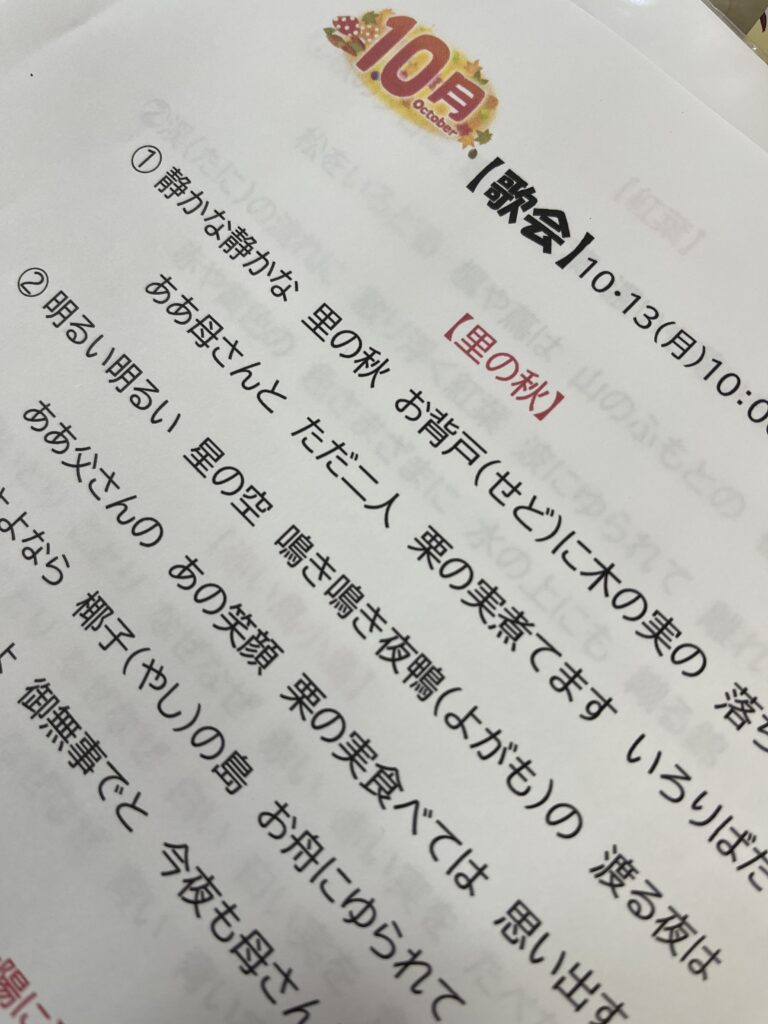 10月
October
【歌会】10・13(月)10:00
【里の秋】
① 静かな静かな 里の秋 お背戸(せど)に木の実の 落ち
ああ母さんと ただ二人 栗の実煮てます いろりばた
② 明るい明るい 星の空 鳴き鳴き夜鴨(よがも)の 渡る夜は
ああ父さんの あの笑顔 栗の実食べては 思い出す
よなら 椰子(やし)の島 お舟にゆられて
御無事でと 今夜も母さん
陽に